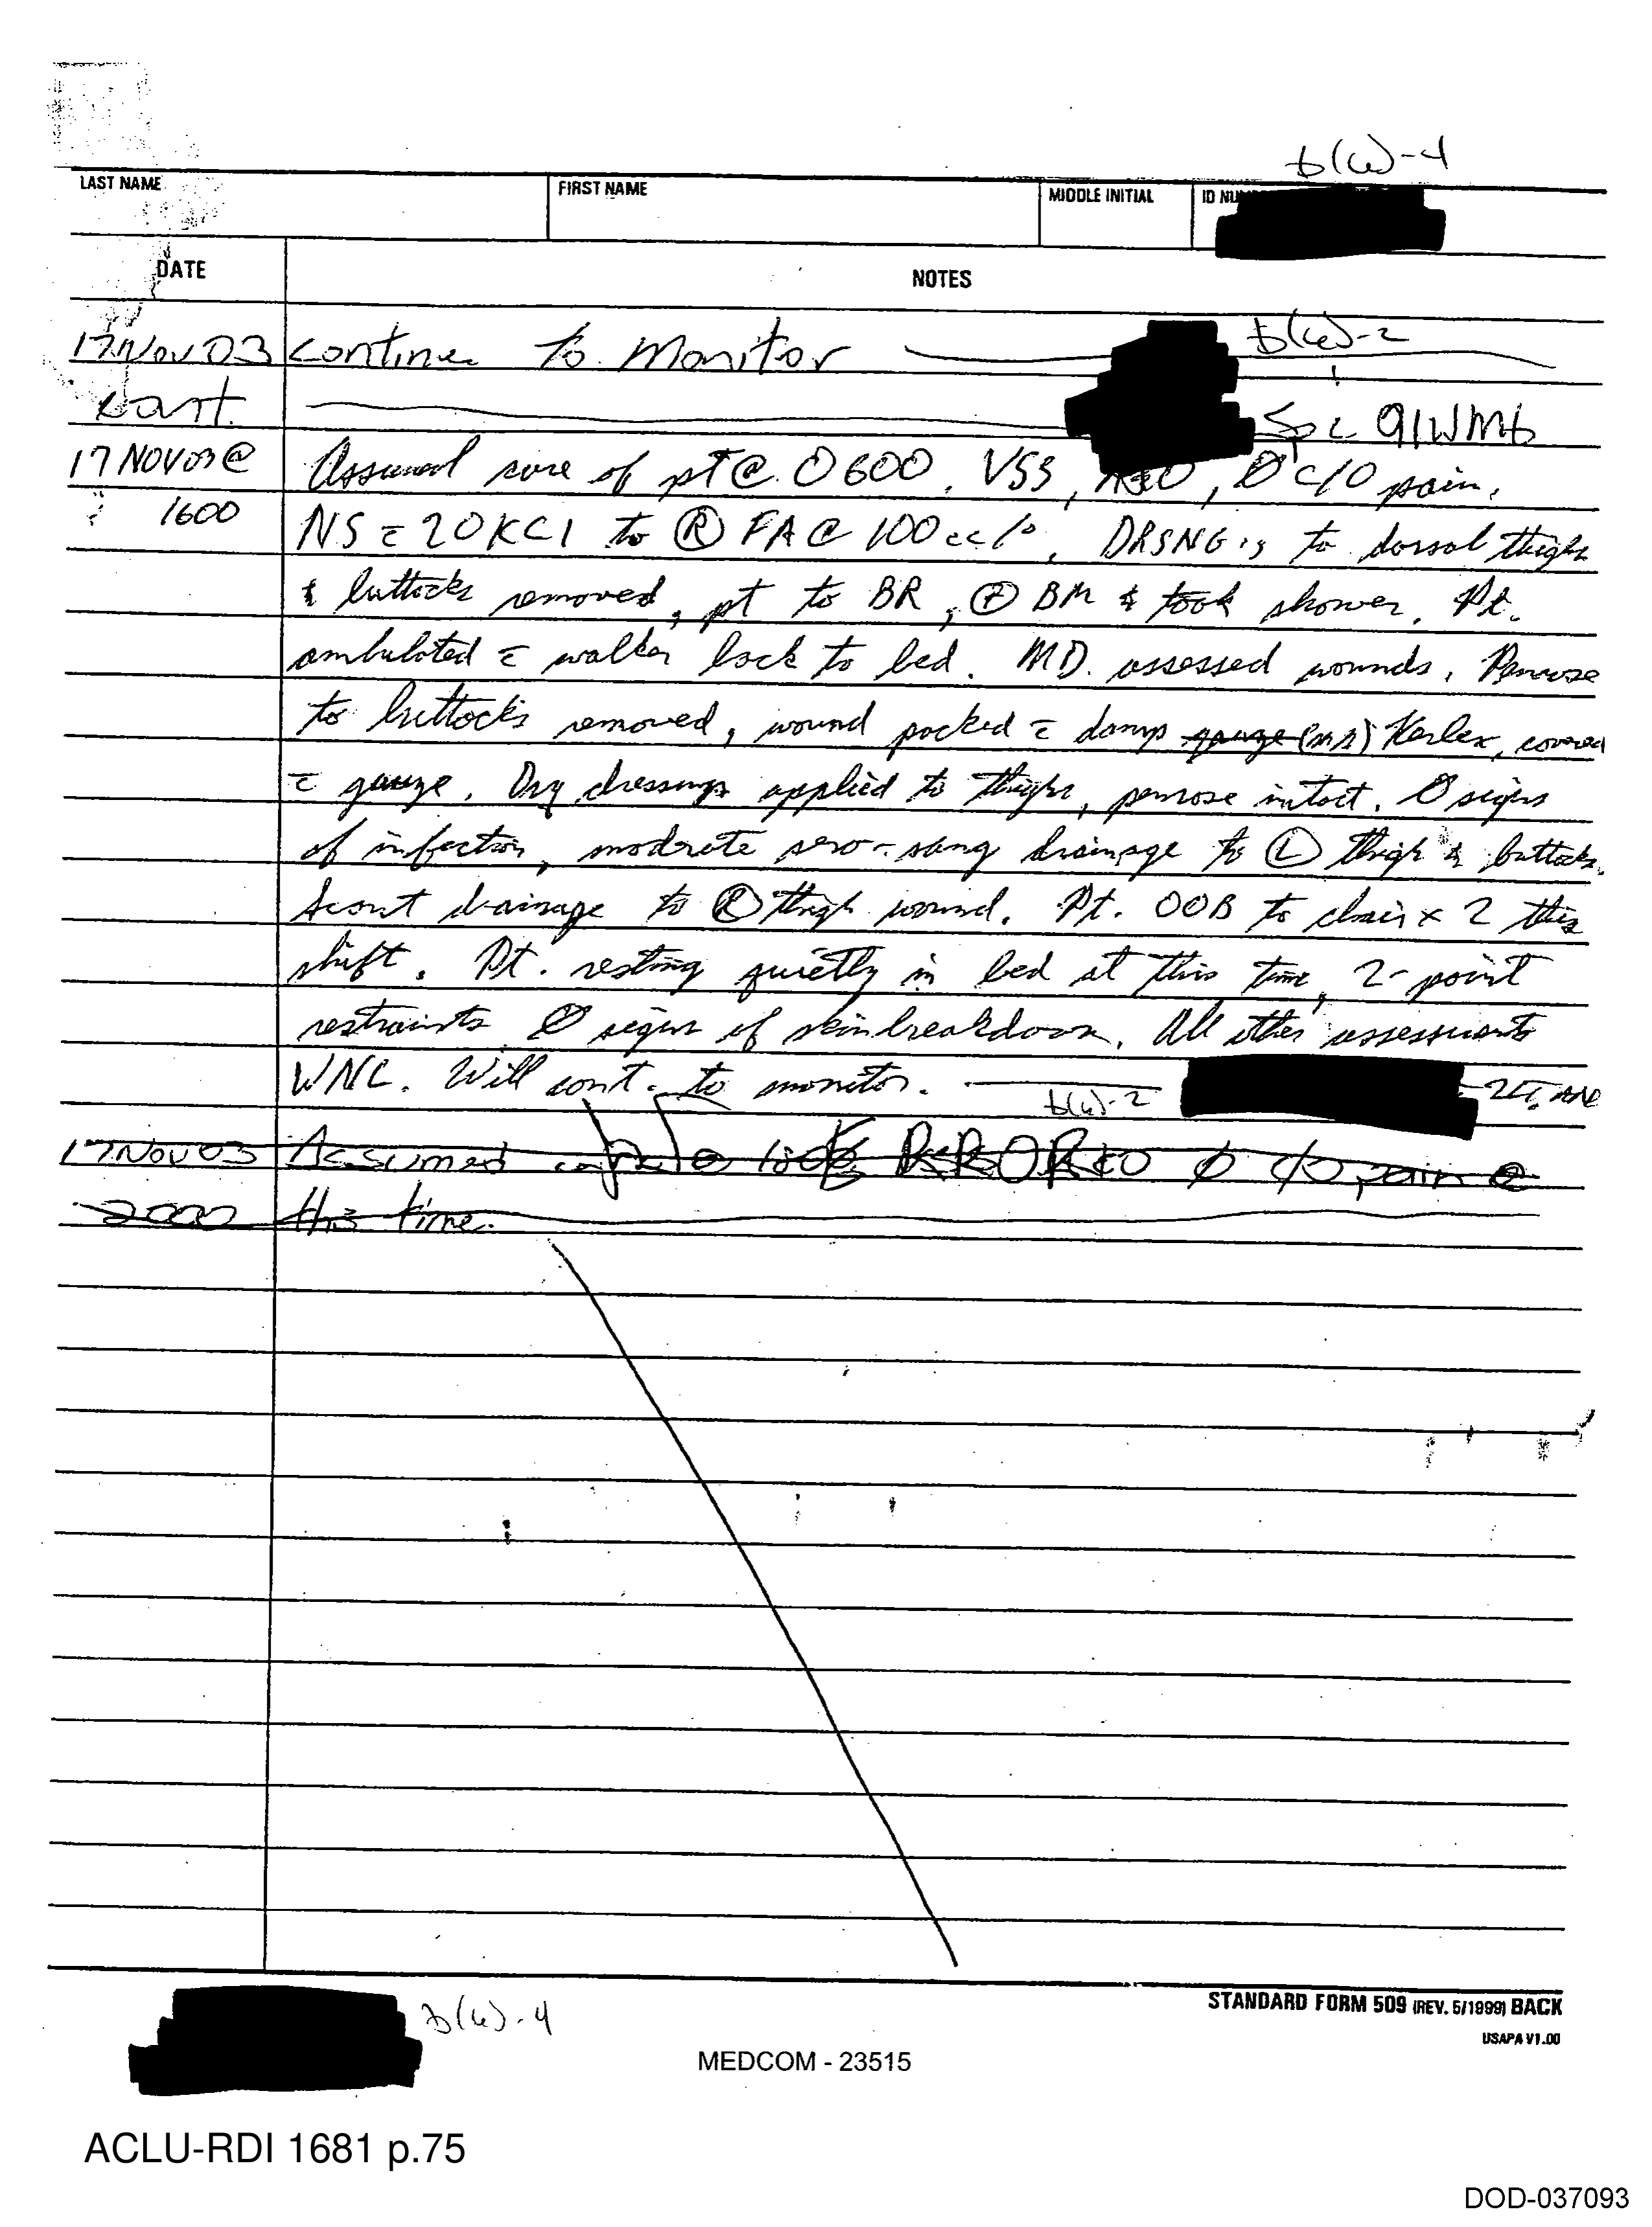 b(6)-4
LAST NAME FIRST NAME MIDDLE INITIAL ID NU
DATE NOTES
17 Nov 03 continue to monitor b(6)-2
cont. Spc 91WM6
17 NOV 03 @ Assumed care of pt @ 0600. VSS, A&O, Ø c/o pain.
1600 NS c̄ 20 KCl to Ⓡ FA @ 100 cc/°. DRSNG's to dorsal thighs
& buttocks removed, pt to BR, ⊕ BM & took shower. Pt.
ambulated c̄ walker back to bed. MD. assessed wounds. Penrose
to buttocks removed, wound packed c̄ damp gauze Kerlex, covered
c̄ gauze. Dry dressings applied to thighs, penrose intact. Ø signs
of infection, modrate sero-sang drainage to Ⓛ thigh & buttocks.
Scant drainage to Ⓡ thigh wound. Pt. OOB to chair x 2 this
shift. Pt. resting quietly in bed at this time, 2-point
restraints Ø signs of skin breakdown. All other assessments
WNL. Will cont. to monitor. b(6)-2 2LT, AN
17 Nov 03 Assumed @ Ø c/o pain @
2000 this time.
STANDARD FORM 509 (REV. 5/1999) BACK
USAPA V1.00
b(6)-4
MEDCOM - 23515
ACLU-RDI 1681 p.75
DOD-037093